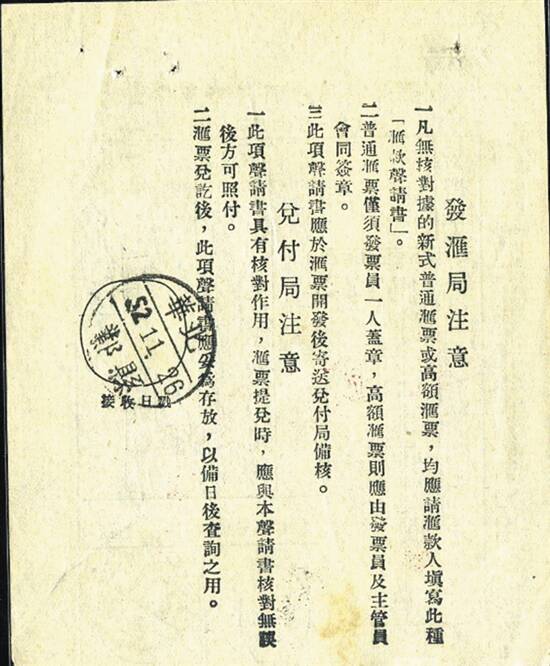 發滙局注意
一凡無核對據的新式普通滙票或高額滙票，均應請滙款人塡寫此種
「滙款聲請書」。
二普通滙票僅須發票員一人蓋章，高額滙票則應由發票員及主管員
會同簽章。
三此項聲請書應於滙票開發後寄送兌付局備核。
兌付局注意
一此項聲請書具有核對作用，滙票提兌時，應與本聲請書核對無誤
後方可照付。
二滙票兌訖後，此項聲請書應妥爲存放，以備日後查詢之用。
接收日戳
華北
52.11.26